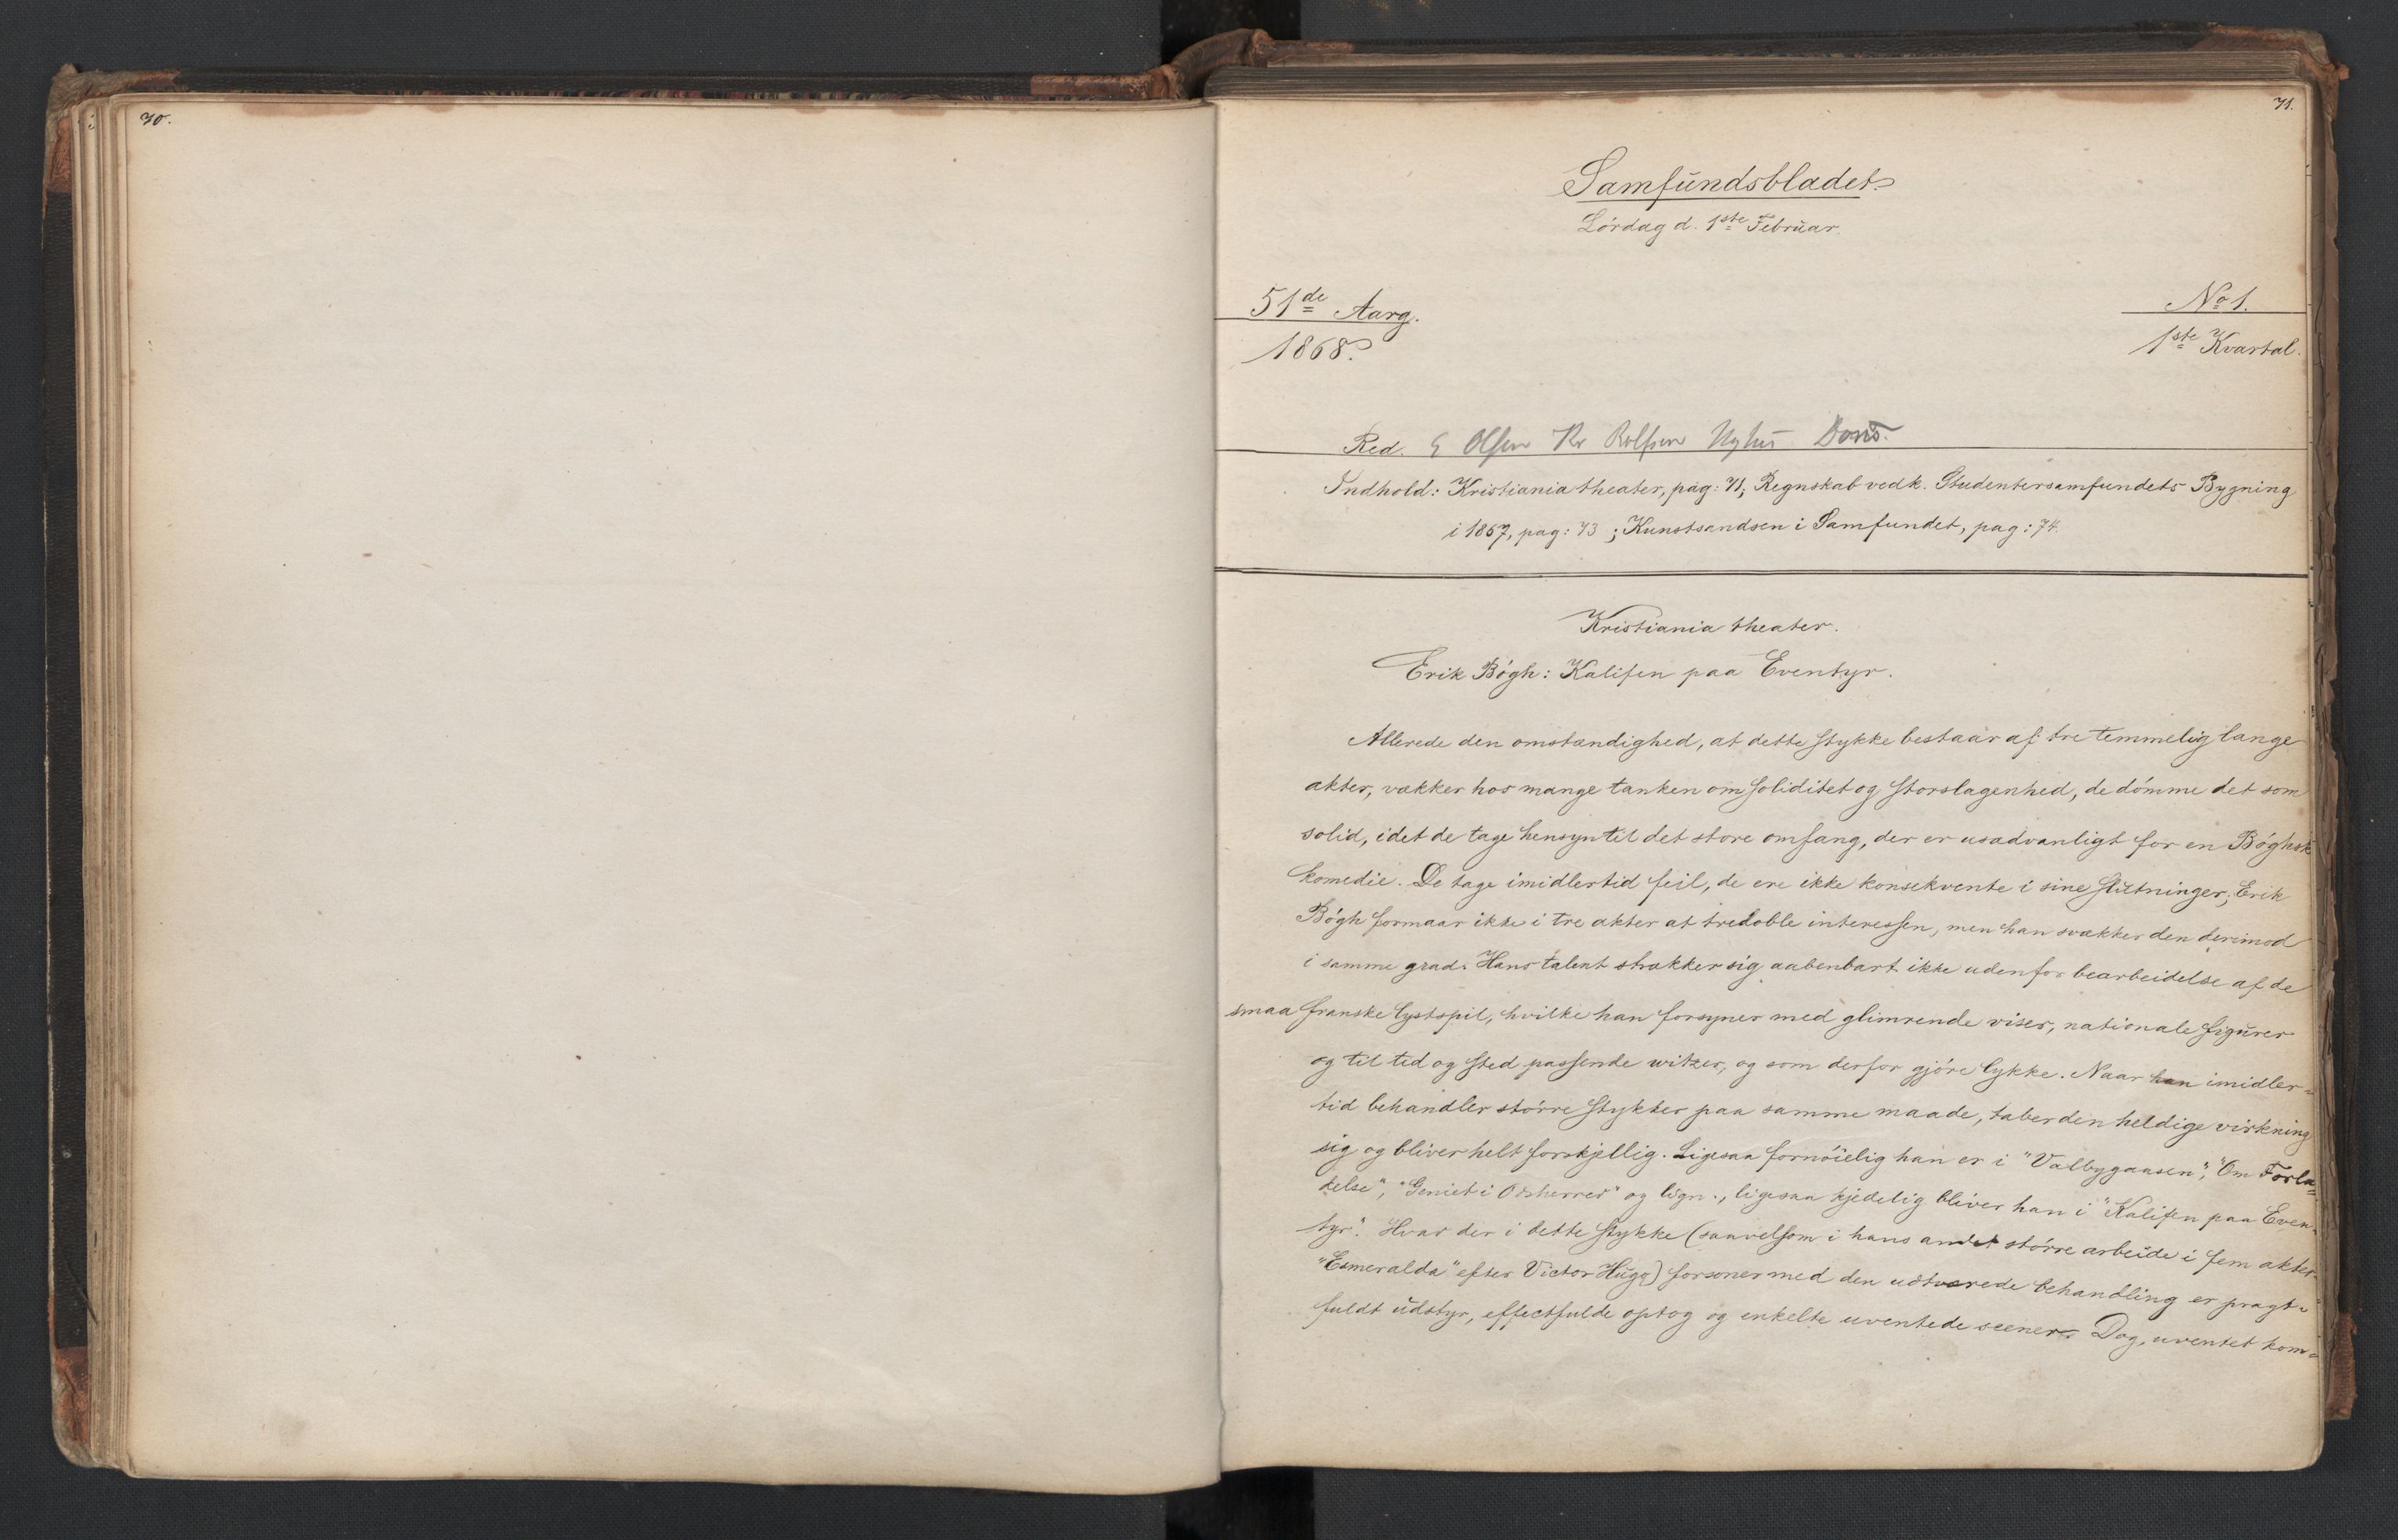 70.
71.
Samfundsbladet
Lördag d. 1ste Februar.
51de Aarg.
No 1.
1868.
1ste Kvartal.
Red. E Olsen Kr Rolfsen Nyhus Dons.
Indhold: Kristiania theater, pag: 71; Regnskab vedk. Studentersamfundets Bygning
i 1867, pag: 73; Kunstsandsen i Samfundet, pag: 74.
Kristiania theater.
Erik Bögh: Kalifen paa Eventyr.
Allerede den omstændighed, at dette stykke bestaar af tre temmelig lange
akter, vækker hos mange tanken om soliditet og storslagenhed, de dömme det som
solid, idet de tage hensyn til det store omfang, der er usædvanligt for en Böghsk
komedie. De tage imidlertid feil, de ere ikke konsekvente i sine slutninger; Erik
Bögh formaar ikke i tre akter at tredoble interessen, men han svækker den derimod
i samme grad. Hans talent strækker sig aabenbart ikke udenfor bearbeidelse af de
smaa franske lystspil, hvilke han forsyner med glimrende viser, nationale figurer
og til tid og sted passende witzer, og som derfor gjöre lykke. Naar han imidler=
tid behandler större stykker paa samme maade, taber den heldige virkning
sig og bliver helt forskjellig. Ligesaa fornöielig han er i "Valbygaasen", "Om Forla=
delse", "Geniet i Odsherred" og lign., ligesaa kjedelig bliver han i "Kalifen paa Even=
tyr". Hvad der i dette stykke (saavelsom i hans andet större arbeide i fem akter
"Esmeralda" efter Victor Hugo) forsoner med den udtværede behandling er pragt=
fuldt udstyr, effectfulde optog og enkelte uventede scener. Dog, uventet kom=